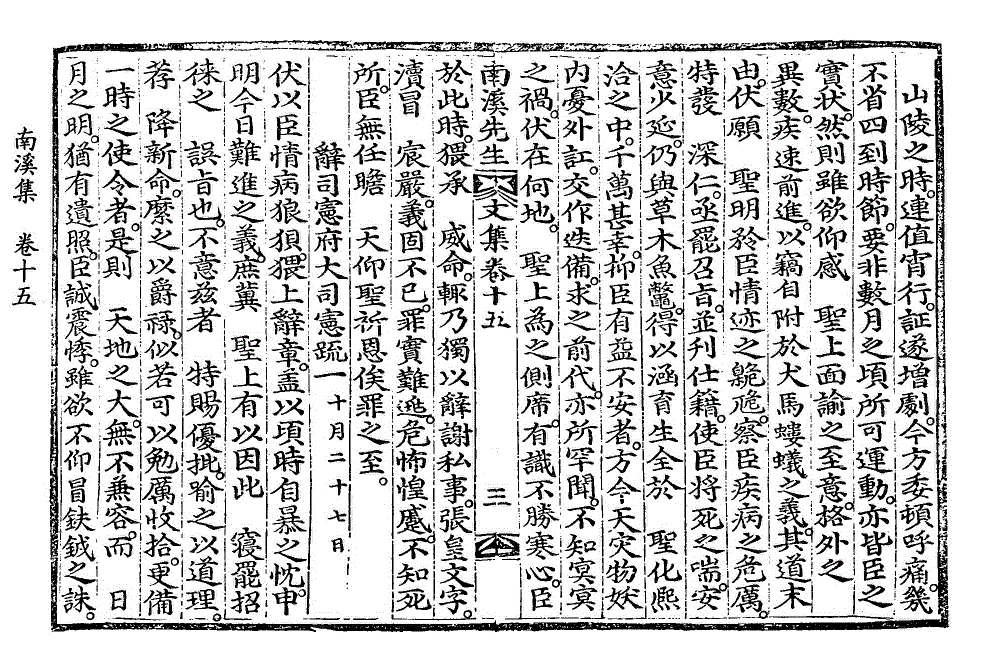 山陵之時。連值宵行。証遂增劇。今方委頓呼痛。幾
不省四到時節。要非數月之頃所可運動。亦皆臣之
實狀。然則雖欲仰感　聖上面諭之至意。格外之
異數。疾速前進。以竊自附於犬馬螻蟻之義。其道末
由。伏願　聖明於臣情迹之臲卼。察臣疾病之危厲。
特發　深仁。亟罷召旨。並刊仕籍。使臣將死之喘。安
意少延。仍與草木魚鼈。得以涵育生全於　聖化熙
洽之中。千萬甚幸。抑臣有益不安者。方今天灾物妖
內憂外訌。交作迭備。求之前代。亦所罕聞。不知冥冥
之禍。伏在何地。　聖上為之側席。有識不勝寒心。臣
南溪先生文集卷十五　三
於此時。猥承　威命。輒乃獨以辭謝私事。張皇文字。
瀆冒　宸嚴。義固不已。罪實難逃。危怖惶蹙。不知死
所。臣無任瞻　天仰聖祈恩俟罪之至。
辭司憲府大司憲疏一　十月二十七日
伏以臣情病狼狽。猥上辭章。盖以頃時自暴之忱。申
明今日難進之義。庶冀　聖上有以因此　寢罷招
徠之　誤旨也。不意兹者　特賜優批。喻之以道理。
荐　降新命。縻之以爵祿。似若可以勉厲收拾。更備
一時之使令者。是則　天地之大。無不兼容。而　日
月之明。猶有遺照。臣誠震悸。雖欲不仰冒鈇鉞之誅。
南溪集　卷十五